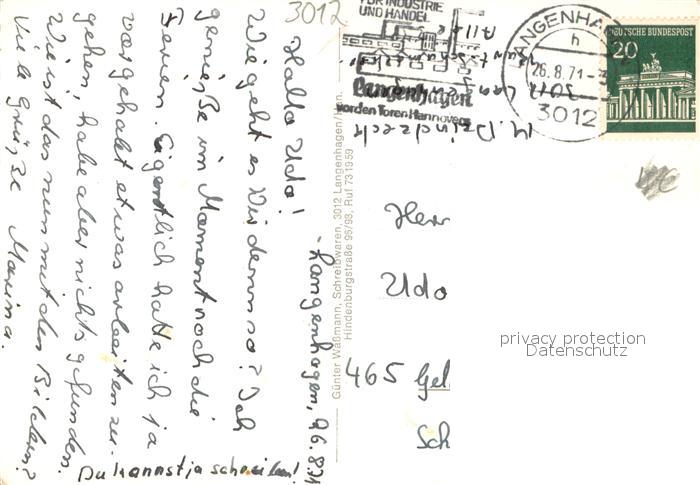 3012
Langenhagen, 26.8.71
Hallo Udo!
Wie geht es Dir denn so? Ich
genieße im Moment noch die
Ferien. Eigentlich hatte ich ja
vorgehabt etwas arbeiten zu
gehen, habe aber nichts gefunden.
Wie ist das nun mit den Bildern?
Viele Grüße Marina.
Du kannst ja schreiben!
Günter Waßmann, Schreibwaren, 3012 Langenhagen/Hann.
Hindenburgstraße 95/93, Ruf 731959
FÜR INDUSTRIE
UND HANDEL
Langenhagen
vor den Toren Hannovers
LANGENHA
h
26.8.71
3012
DEUTSCHE BUNDESPOST
20
3012 Langenhagen
Herr
Udo
465 Gel
Sch
privacy protection
Datenschutz